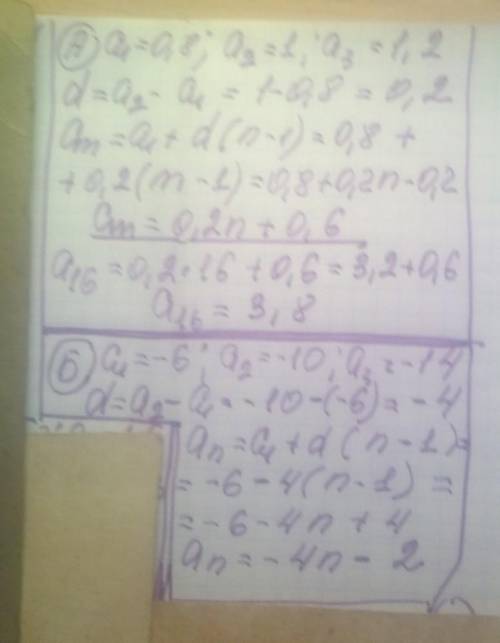 А) a₁=0,8; a₂=1; a₃=1,2
d=a₂-a₁=1-0,8=0,2
aₙ=a₁+d(n-1)=0,8+
+0,2(n-1)=0,8+0,2n-0,2
aₙ=0,2n+0,6
a₁₆=0,2·16+0,6=3,2+0,6
a₁₆=3,8
Б) a₁=-6; a₂=-10; a₃=-14
d=a₂-a₁=-10-(-6)=-4
aₙ=a₁+d(n-1)=
=-6-4(n-1)=
=-6-4n+4
aₙ=-4n-2